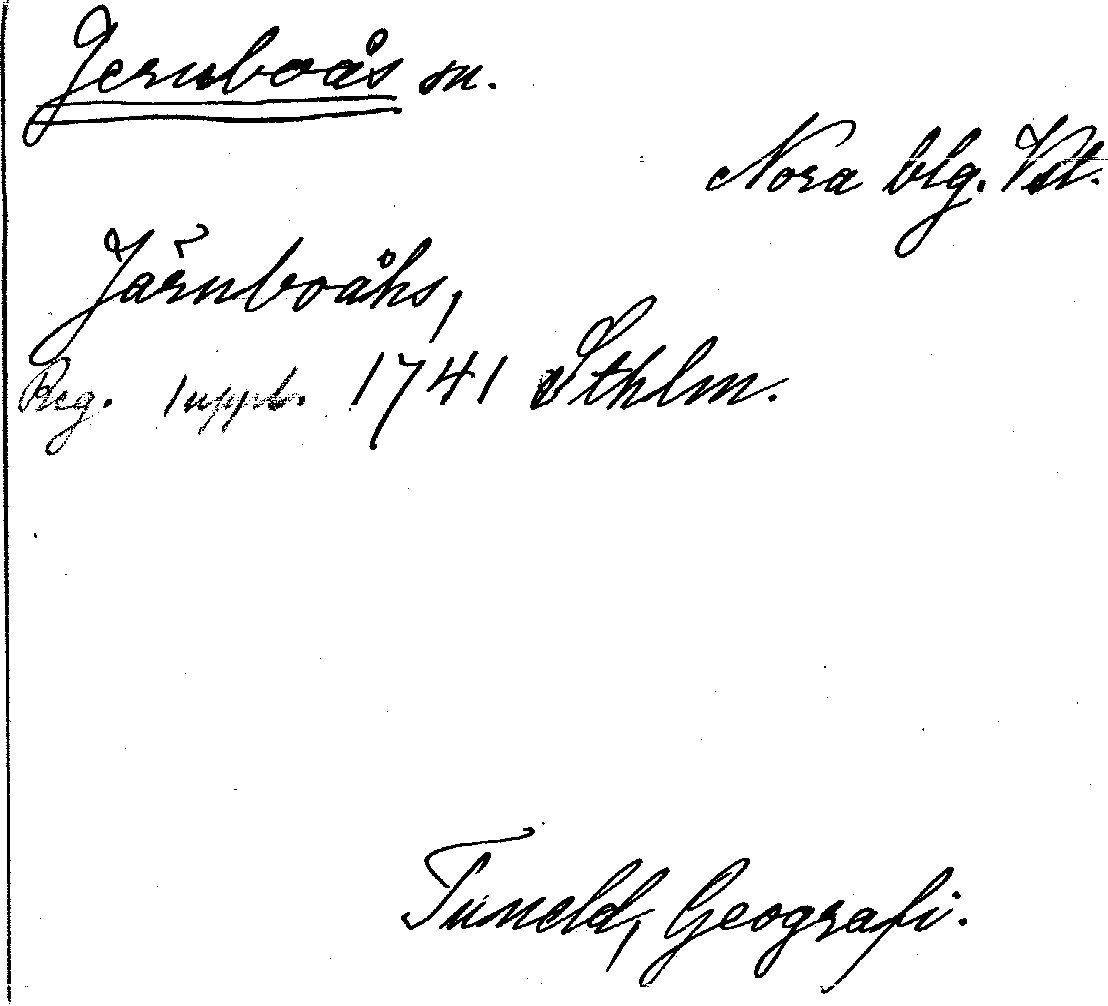 Jernboås sn.
Nora blg. Vstl.
Järnboåhs,
Reg. 1 uppl. 1741 Sthlm.
Tuneld, Geografi.